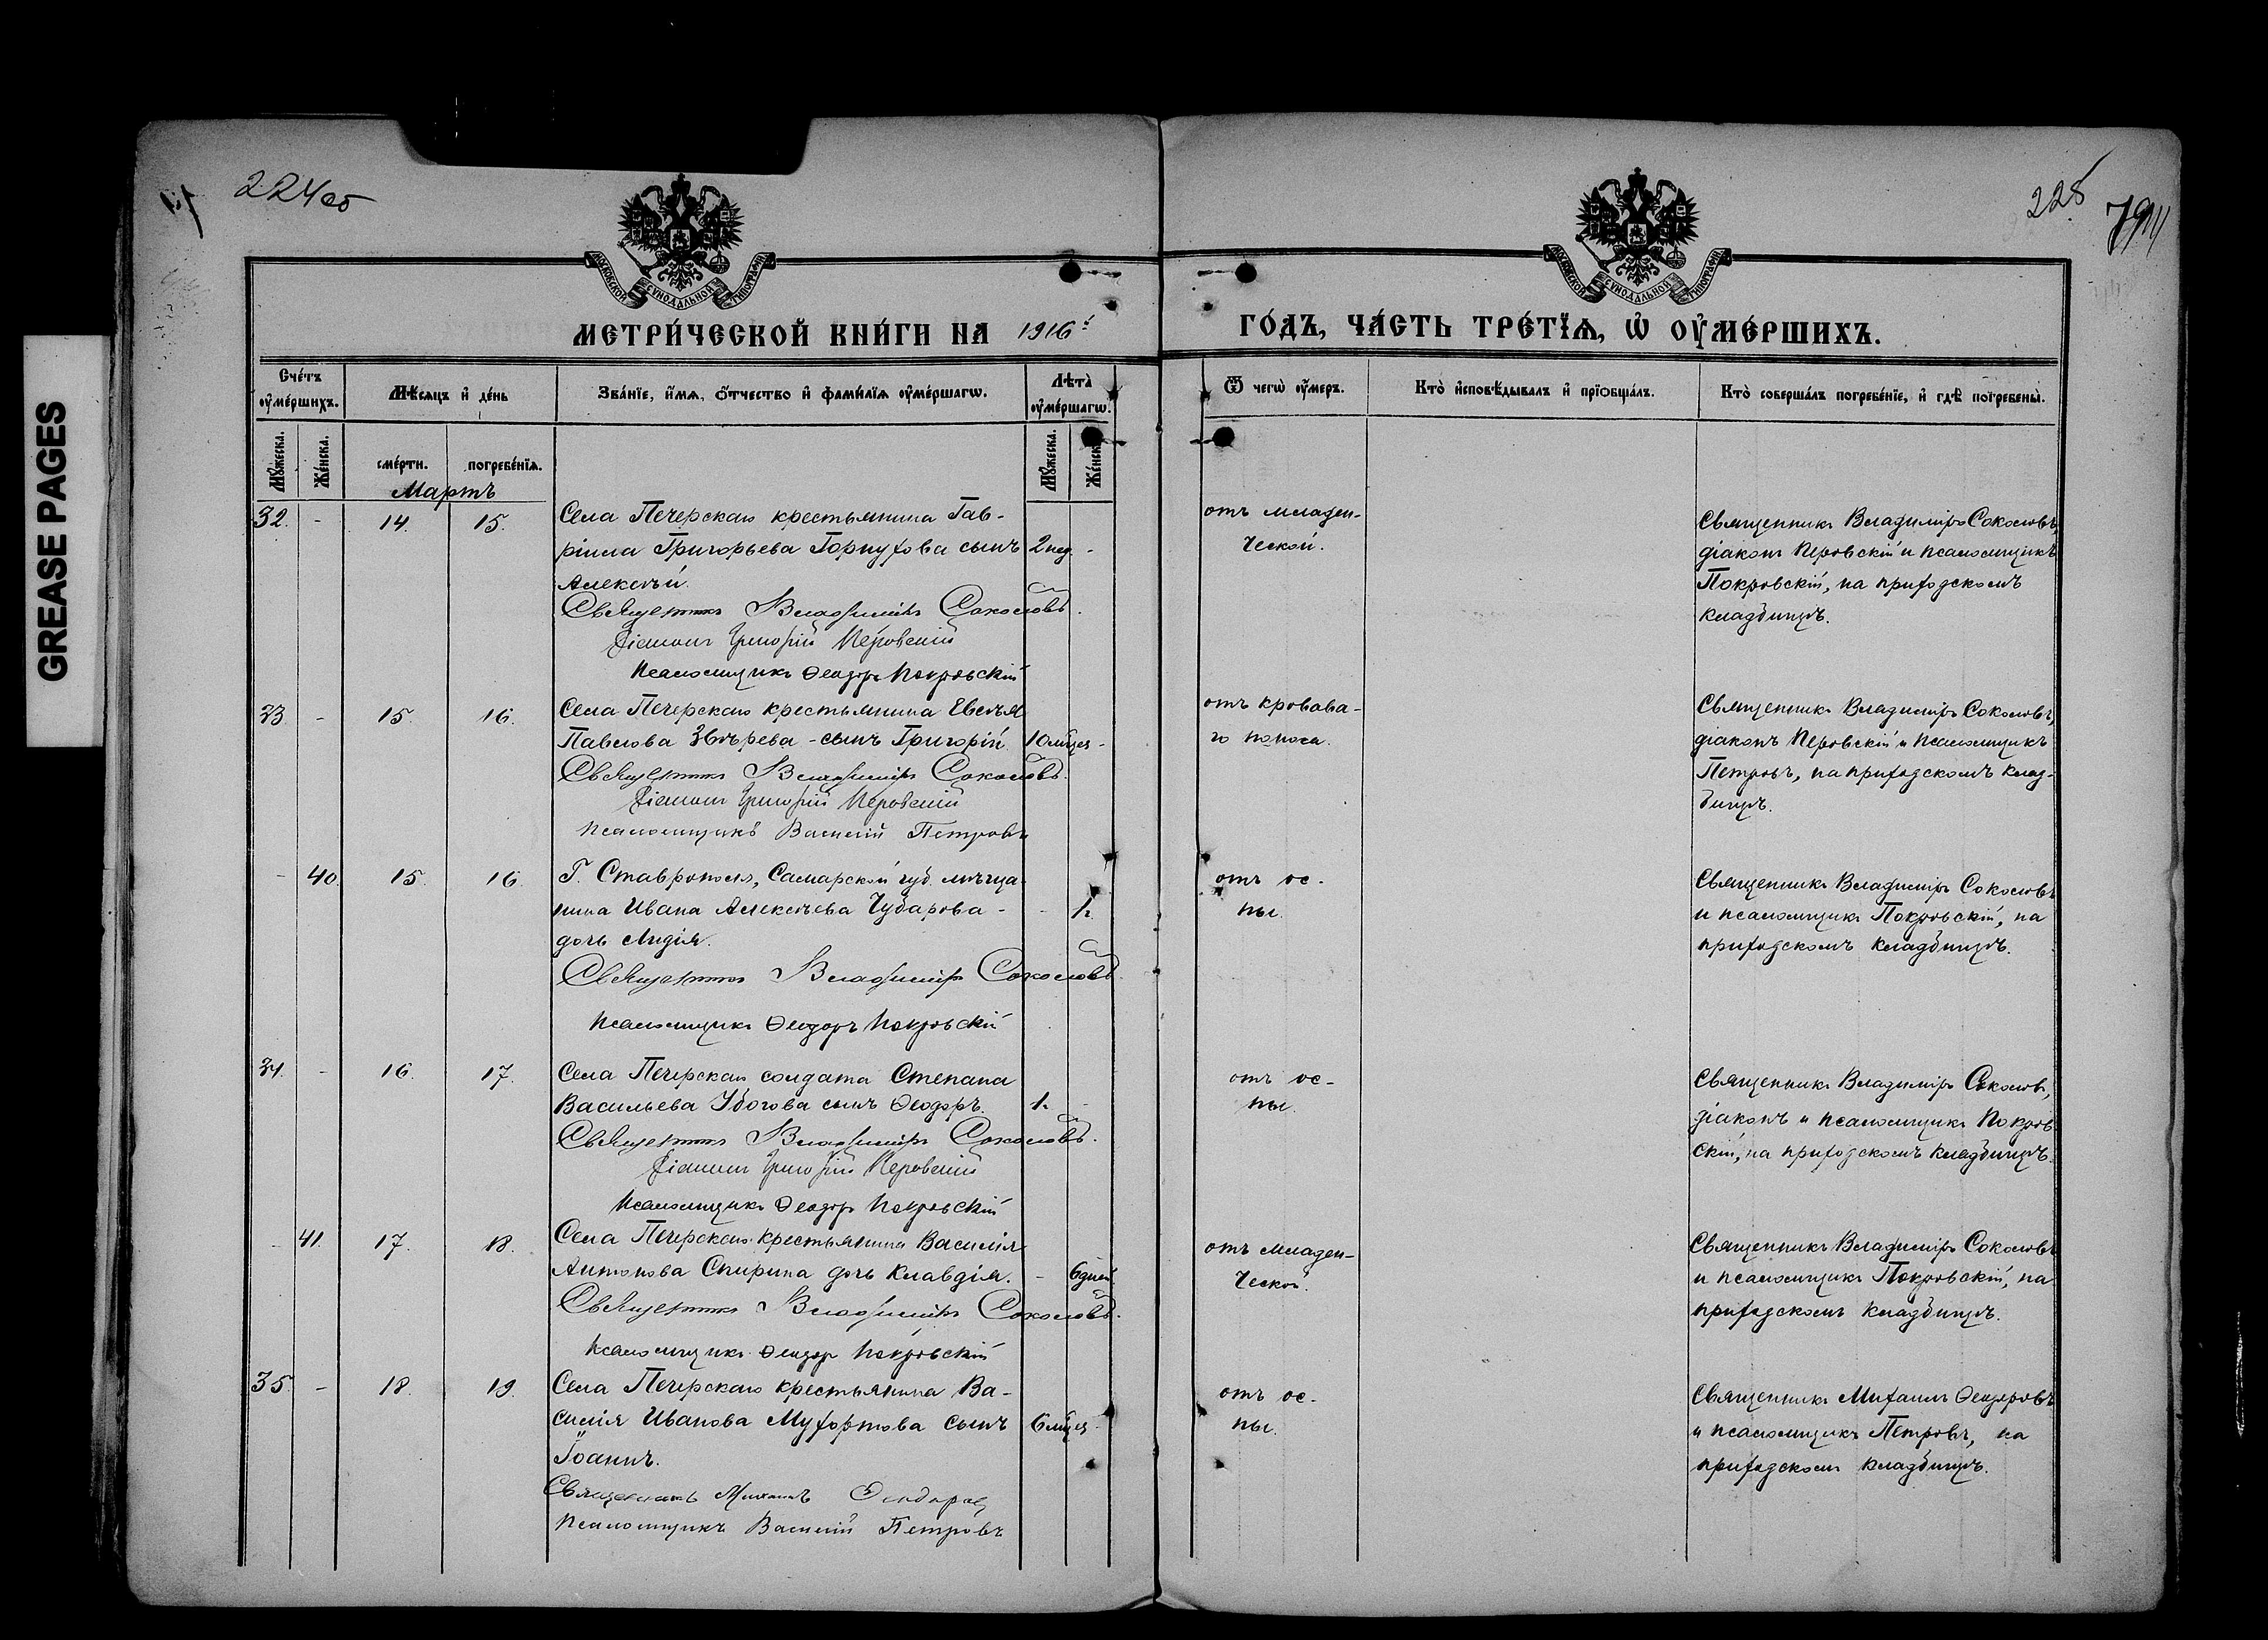 GREASE PAGES
224 об
225
79
МОСКОВСКОЙ СУНОДАЛЬНОЙ ТИПОГРАФІИ
МОСКОВСКОЙ СУНОДАЛЬНОЙ ТИПОГРАФІИ
МЕТРИ́ЧЕСКОЙ КНИ́ГИ НА 1916й
ГО́ДЪ, ЧА́СТЬ ТРЕ́ТЇѦ, Ѡ҆ ОУ҆МЕ́РШИХЪ.
Сче́тъ оу҆ме́ршихъ.
Мѣ́сѧцъ и҆ де́нь
Зва́нїе, и҆́мѧ, ѻ҆́тчество и҆ фами́лїѧ оу҆ме́ршагѡ.
Лѣта̀ оу҆ме́ршагѡ.
Ѿ чегѡ̀ оу҆́меръ.
Кто̀ и҆сповѣ́дывалъ и҆ прїѻбща́лъ.
Кто̀ соверша́лъ погребе́нїе, и҆ гдѣ̀ погребены̀.
Мꙋ́жеска.
Же́нска.
сме́рти.
погребе́нїѧ.
Мꙋ́жеска.
Же́нска.
Мартъ
32. - 14. 15.
Села Печерскаго крестьянина Гав-
ріила Григорьева Горпухова сынъ 2 нед. -
Алексѣй.
Священникъ Владиміръ Соколовъ.
Діаконъ Григорій Перовскій
Псаломщикъ Ѳеодоръ Покровскій
отъ младен-
ческой.
Священникъ Владиміръ Соколовъ,
діаконъ Перовскій и псаломщикъ
Покровскій, на приходскомъ
кладбищѣ.
33 - 15. 16.
Села Печерскаго крестьянина Евсѣя
Павлова Звѣрева - сынъ Григорій. 10 мѣся -
Священникъ Владиміръ Соколовъ.
Діаконъ Григорій Перовскій
Псаломщикъ Василій Петровъ
отъ кровава-
го поноса.
Священникъ Владиміръ Соколовъ,
діаконъ Перовскій и псаломщикъ
Петровъ, на приходскомъ клад-
бищѣ.
- 40. 15. 16.
Г. Ставрополя, Самарской губ. мѣща-
нина Ивана Алексѣева Чубарова - - 1 г.
дочь Лидія.
Священникъ Владиміръ Соколовъ
Псаломщикъ Ѳеодоръ Покровскій
отъ ос-
пы.
Священникъ Владиміръ Соколовъ
и псаломщикъ Покровскій, на
приходскомъ кладбищѣ.
34. - 16. 17.
Села Печерскаго солдата Степана
Васильева Убогова сынъ Ѳеодоръ. 1 г. -
Священникъ Владиміръ Соколовъ.
Діаконъ Григорій Перовскій
Псаломщикъ Ѳеодоръ Покровскій
отъ ос-
пы.
Священникъ Владиміръ Соколовъ,
діаконъ и псаломщикъ Покров-
скій, на приходскомъ кладбищѣ.
- 41. 17. 18.
Села Печерскаго крестьянина Василія
Антонова Спирина дочь Клавдія. - 6 дней
Священникъ Владиміръ Соколовъ.
Псаломщикъ Ѳеодоръ Покровскій
отъ младен-
ческой.
Священникъ Владиміръ Соколовъ
и псаломщикъ Покровскій, на
приходскомъ кладбищѣ.
35 - 18. 19.
Села Печерскаго крестьянина Ва-
силія Иванова Мухортова сынъ 6 мѣся -
Іоаннъ.
Священникъ Михаилъ Ѳеодоровъ
Псаломщикъ Василій Петровъ
отъ ос-
пы.
Священникъ Михаилъ Ѳеодоровъ
и псаломщикъ Петровъ, на
приходскомъ кладбищѣ.